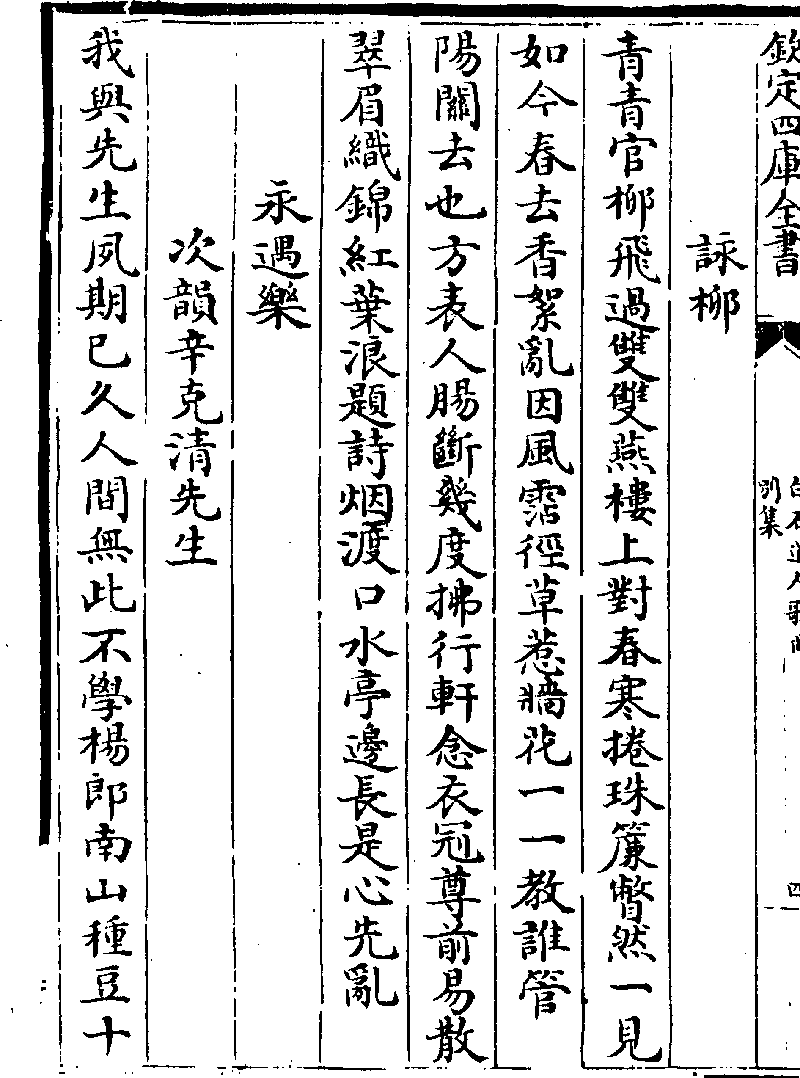 欽定四庫全書
別集
四
詠柳
青青官柳飛過雙雙燕樓上對春寒捲珠簾瞥然一見
如今春去香絮亂因風霑徑草惹牆花一一教誰管
陽關去也方表人腸斷幾度拂行軒念衣冠尊前易散
翠眉織錦紅葉浪題詩烟渡口水亭邊長是心先亂
永遇樂
次韻辛克清先生
我與先生夙期已久人間無此不學楊郎南山種豆十